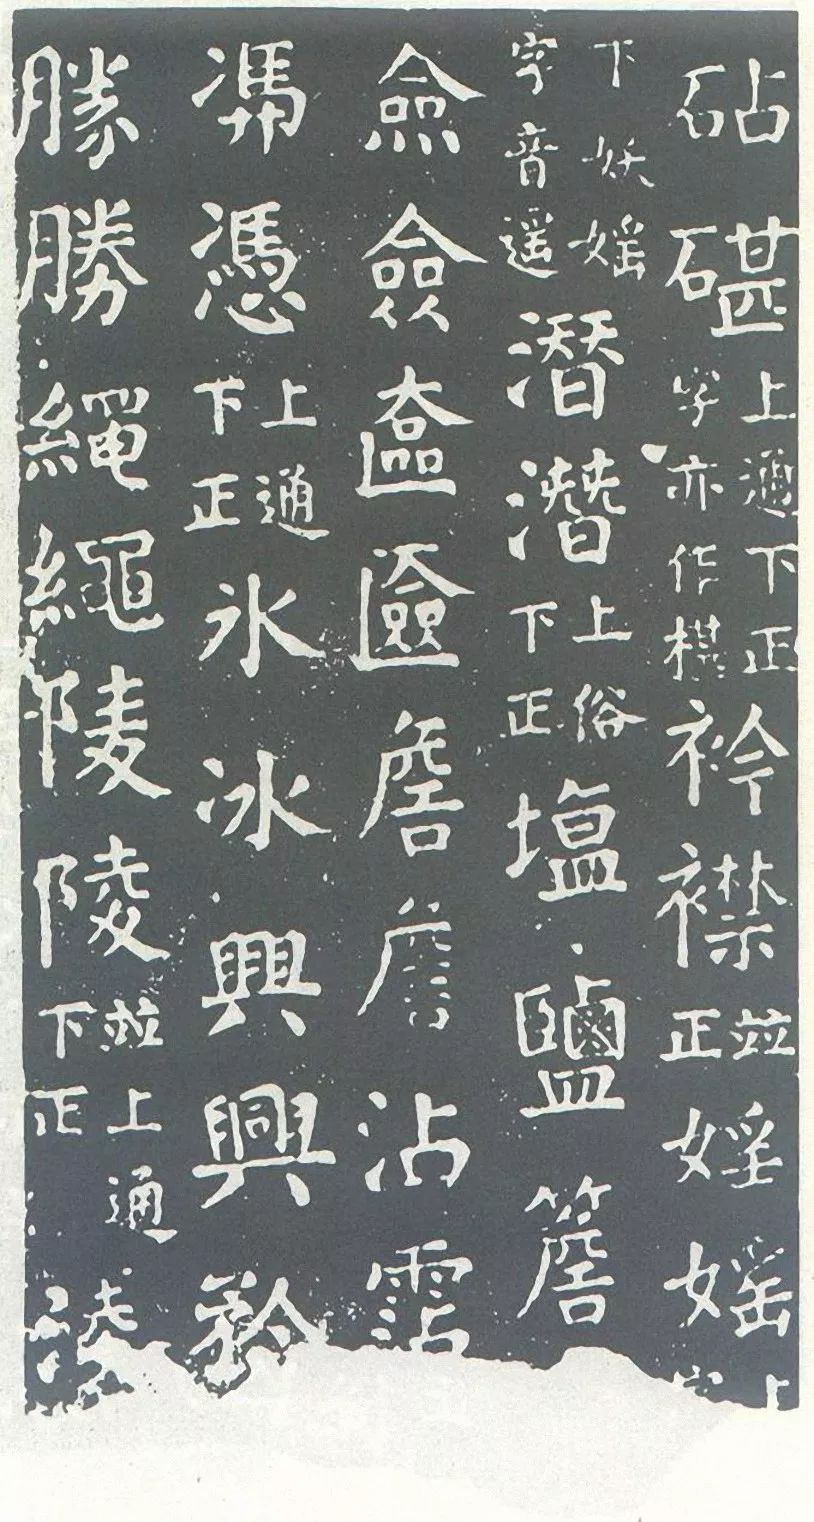 砧碪上通下正字亦作椹衿襟並正婬媱
下妖媱字音遥潜潛上俗下正塩鹽簷
僉奩匳詹詹沾霑
憑上通下正氷冰興興矜
勝勝繩繩陵陵並上通下正